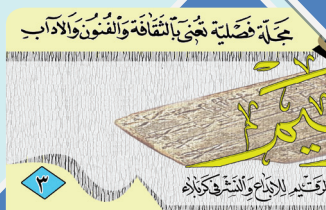 مَجَلَّة فَصْلِيَّة تُعْنَى بِالثَّقَافَة وَالْفُنُون وَالْآدَابِ
للإبداع والنشر في كربلاء
٣